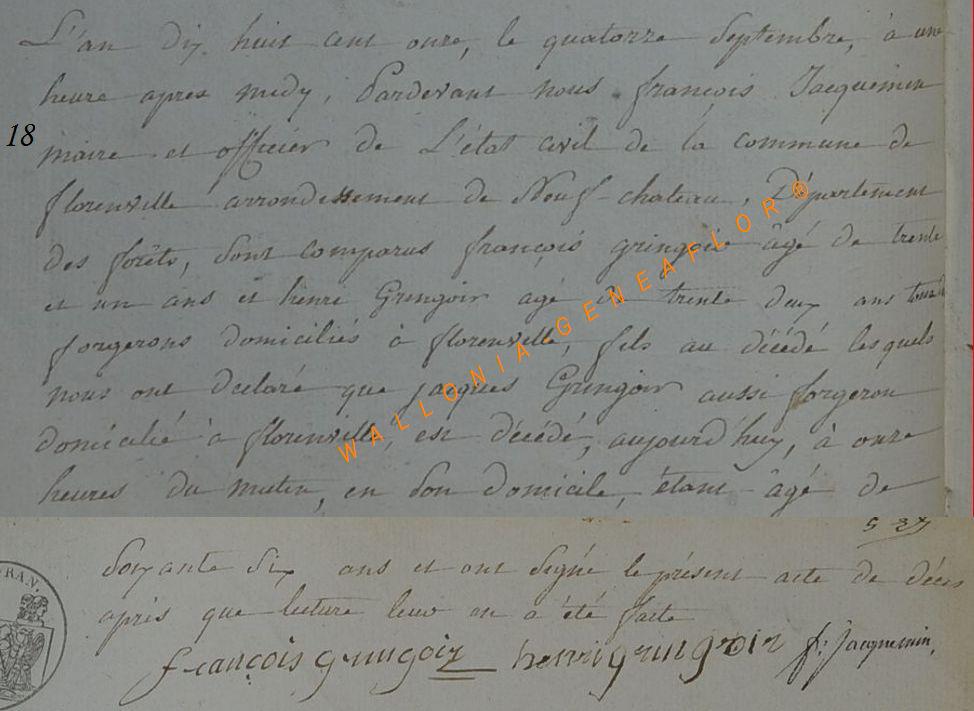 L'an dix huit cent onze, le quatorze Septembre, à une
heure apres midy, Pardevant nous françois Jacquemin
18
maire et officier de L'état civil de la commune de
florenville arrondissement de Neuf-chateau, Département
des forêts, sont comparus françois gringoir âgé de trente
et un ans et henri Gringoir agé de trente deux ans tous
forgerons domiciliés à florenville, fils au décédé lesquels
nous ont declaré que jacques Gringoir aussi forgeron
domicilié à florenville, est décédé, aujourd'huy, à onze
heures du matin, en son domicile, étant âgé de
soixante six ans et ont signé le présent acte de décès
après que lecture leur en a été faite
françois gringoir henri gringoir f: Jacquemin,
WALLONIA GENEAFLOR®
FRAN.